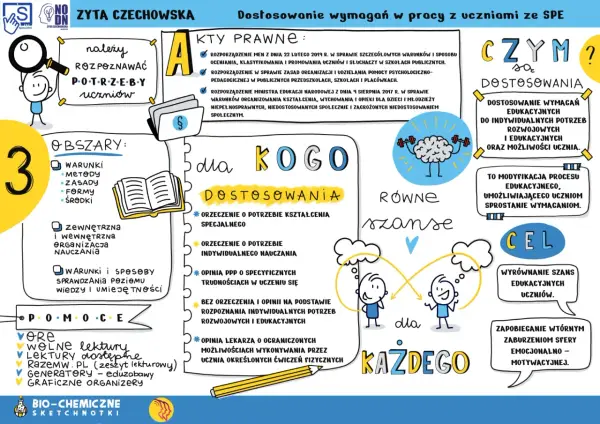 S
NO
DN
ZYTA CZECHOWSKA
Dostosowanie wymagań w pracy z uczniami ze SPE
należy
ROZPOZNAWAĆ
P·O·T·R·Z·E·B·Y
uczniów
AKTY PRAWNE:
ROZPORZĄDZENIE MEN Z DNIA 22 LUTEGO 2019 R. W SPRAWIE SZCZEGÓŁOWYCH WARUNKÓW I SPOSOBU
OCENIANIA, KLASYFIKOWANIA I PROMOWANIA UCZNIÓW I SŁUCHACZY W SZKOŁACH PUBLICZNYCH.
ROZPORZĄDZENIE W SPRAWIE ZASAD ORGANIZACJI I UDZIELANIA POMOCY PSYCHOLOGICZNO-
PEDAGOGICZNEJ W PUBLICZNYCH PRZEDSZKOLACH, SZKOŁACH I PLACÓWKACH.
ROZPORZĄDZENIE MINISTRA EDUKACJI NARODOWEJ Z DNIA 9 SIERPNIA 2017 R. W SPRAWIE
WARUNKÓW ORGANIZOWANIA KSZTAŁCENIA, WYCHOWANIA I OPIEKI DLA DZIECI I MŁODZIEŻY
NIEPEŁNOSPRAWNYCH, NIEDOSTOSOWANYCH SPOŁECZNIE I ZAGROŻONYCH NIEDOSTOSOWANIEM
SPOŁECZNYM.
CZYM
są
?
DOSTOSOWANIA
DOSTOSOWANIE WYMAGAŃ
EDUKACYJNYCH
DO INDYWIDUALNYCH POTRZEB
ROZWOJOWYCH
I EDUKACYJNYCH
ORAZ MOŻLIWOŚCI UCZNIA.
TO MODYFIKACJA PROCESU
EDUKACYJNEGO,
UMOŻLIWIAJĄCEGO UCZNIOM
SPROSTANIE WYMAGANIOM.
CEL
WYRÓWNANIE SZANS
EDUKACYJNYCH
UCZNIÓW.
ZAPOBIEGANIE WTÓRNYM
ZABURZENIOM SFERY
EMOCJONALNO -
MOTYWACYJNEJ.
3
OBSZARY:
WARUNKI
·METODY
·ZASADY
·FORMY
·ŚRODKI
ZEWNĘTRZNA
I WEWNĘTRZNA
ORGANIZACJA
NAUCZANIA
WARUNKI I SPOSOBY
SPRAWDZANIA POZIOMU
WIEDZY I UMIEJĘTNOŚCI
§
dla KOGO
DOSTOSOWANIA
ORZECZENIE O POTRZEBIE KSZTAŁCENIA
SPECJALNEGO
ORZECZENIE O POTRZEBIE
INDYWIDUALNEGO NAUCZANIA
OPINIA PPP O SPECYFICZNYCH
TRUDNOŚCIACH W UCZENIU SIĘ
BEZ ORZECZENIA I OPINII NA PODSTAWIE
ROZPOZNANIA INDYWIDUALNYCH POTRZEB
ROZWOJOWYCH I EDUKACYJNYCH
OPINIA LEKARZA O OGRANICZONYCH
MOŻLIWOŚCIACH WYKONYWANIA PRZEZ
UCZNIA OKREŚLONYCH ĆWICZEŃ FIZYCZNYCH
RÓWNE
szanse
dla
KAŻDEGO
P·O·M·O·C·E
ORE
WOLNE lektury
LEKTURY dostępne
RAZEMW.PL (zeszyt lekturowy)
GENERATORY - eduzabawy
GRAFICZNE ORGANIZERY
BIO-CHEMICZNE
SKETCHNOTKI